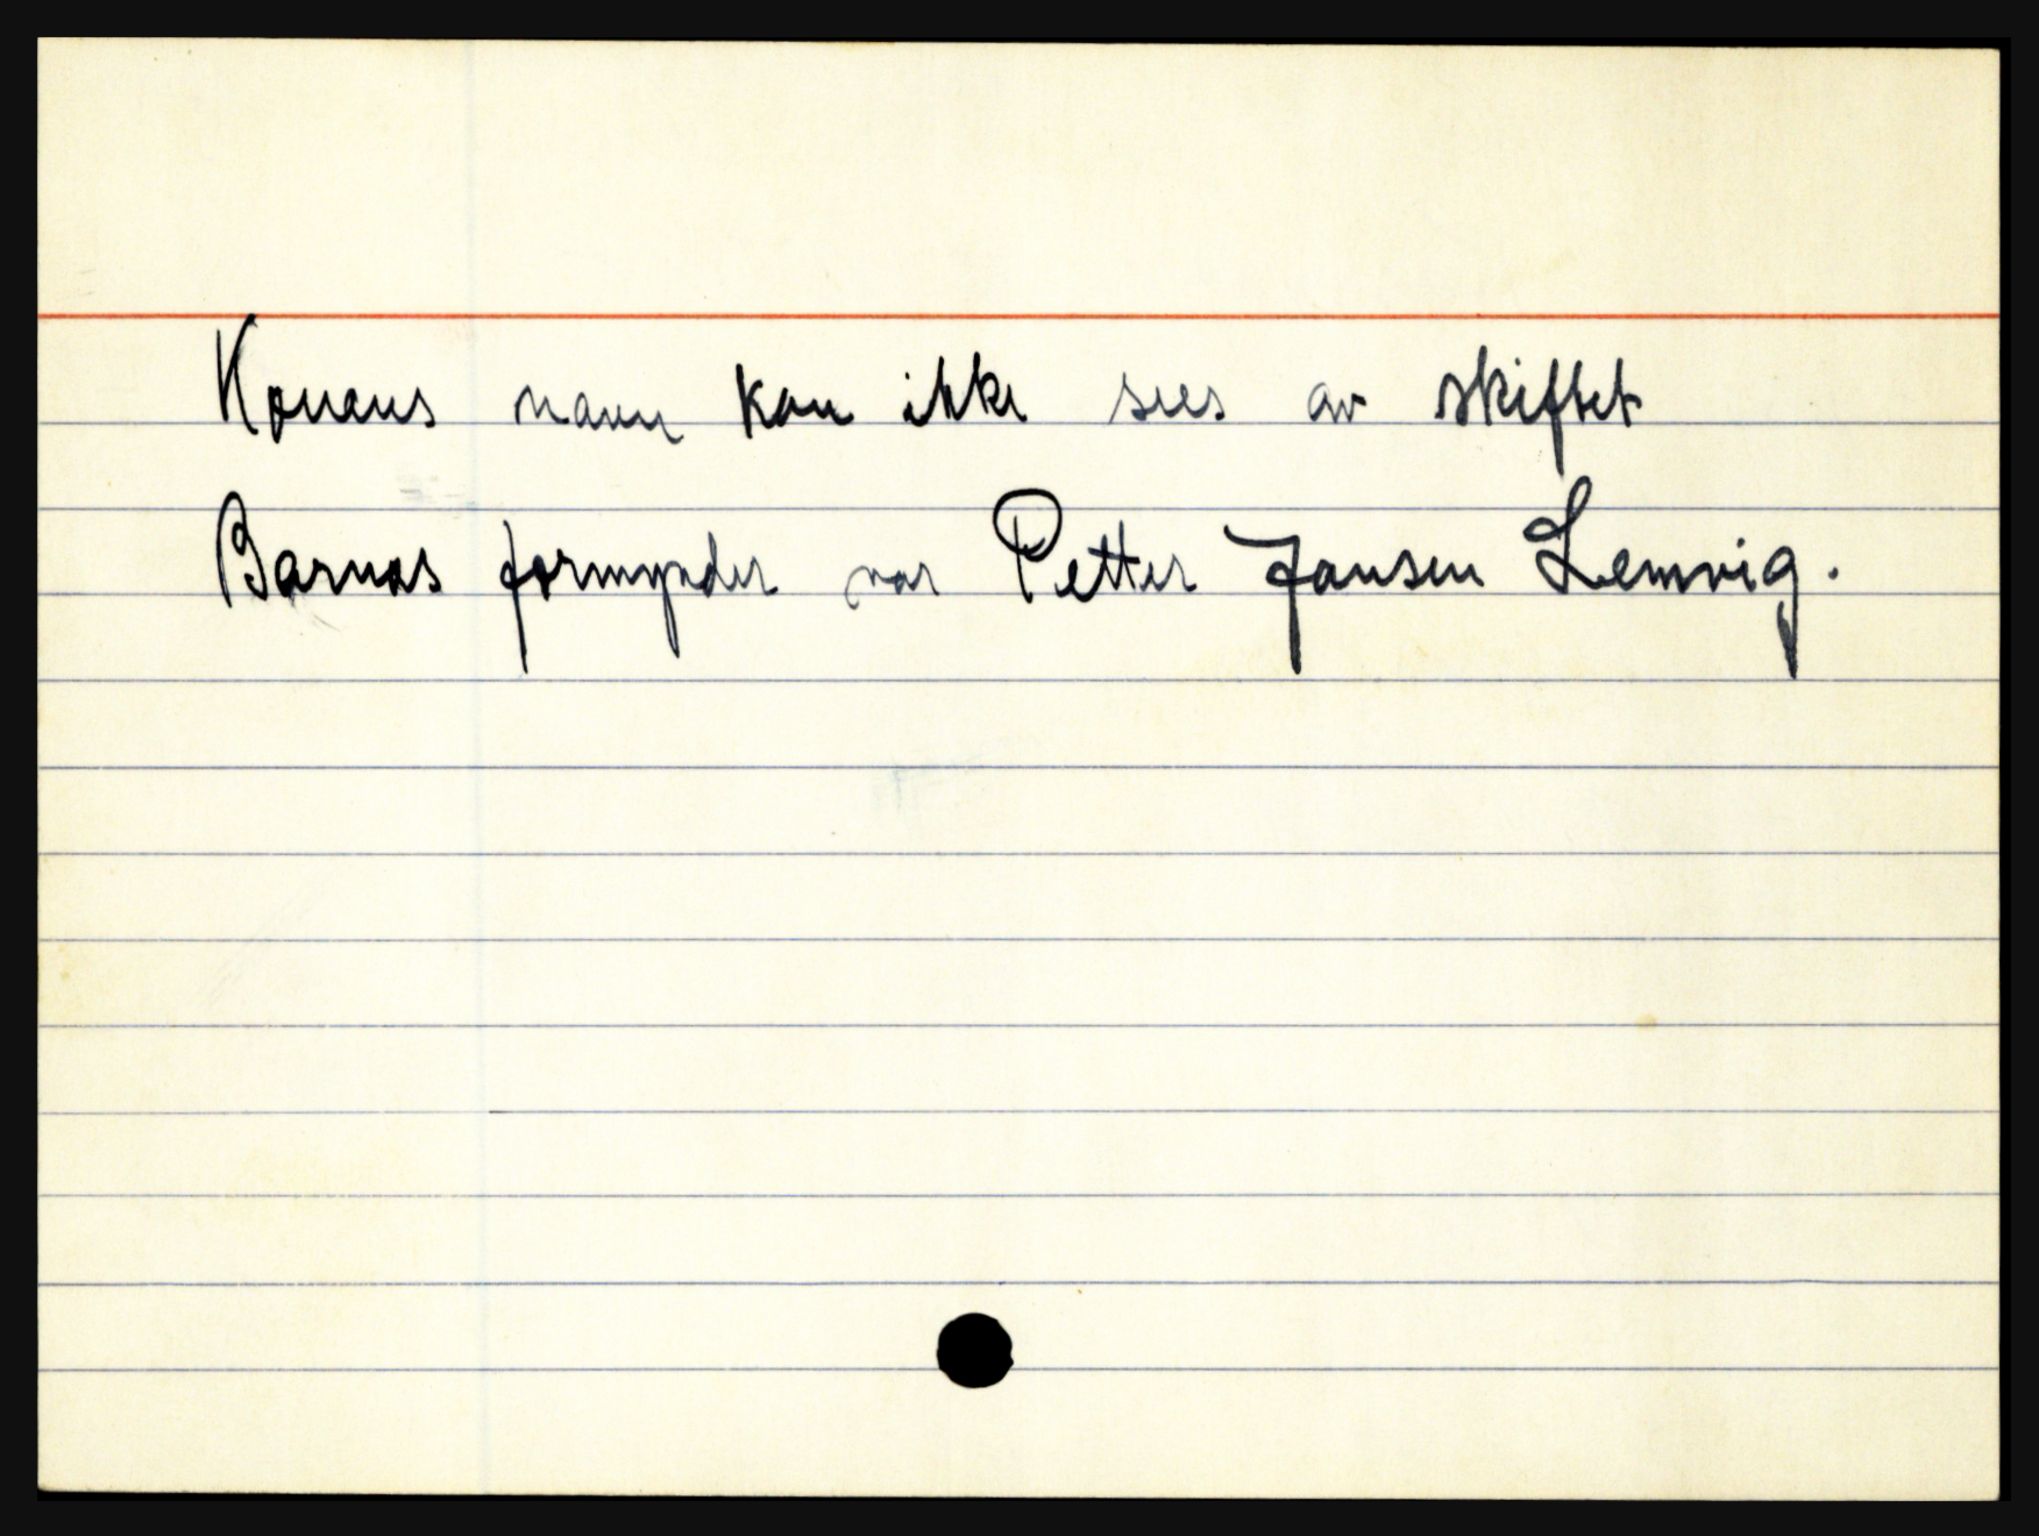 Konens navn kan ikke sees av skiftet
Barnas formynder var Petter Jansen Lemvig.